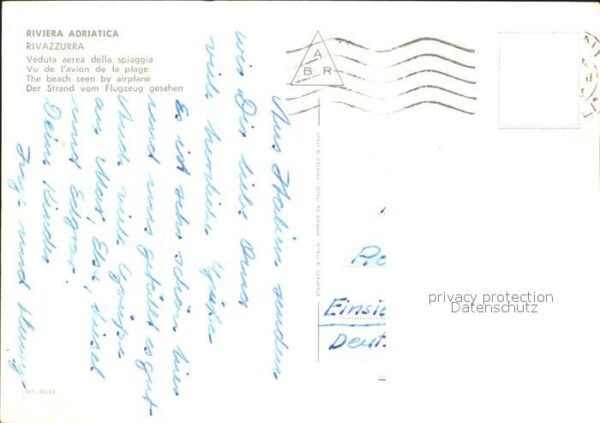 RIVIERA ADRIATICA
RIVAZZURRA
Veduta aerea della spiaggia
Vu de l'avion de la plage
The beach seen by airplane
Der Strand vom Flugzeug gesehen
A
B R
Aus Italien senden
wir Dir liebe Oma
viele herzliche Grüße
Es ist sehr schön hier
und uns gefällt es gut
Auch viele Grüße
an Max, Else,
und Edgar.
Deine Kinder
und
Einsie
Deut
privacy protection
Datenschutz